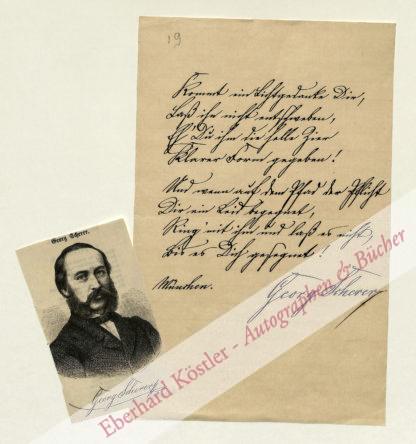 19
Kommt ein Lichtgedanke Dir,
Laß ihn nicht entschweben,
Eh' Du ihm die helle Zier
Klarer Form gegeben!
Und wenn auf dem Pfad der Pflicht
Dir ein Leid begegnet,
Ring mit ihm und laß es nicht
Bis es Dich gesegnet!
München.
Georg Scherer
Georg Scherer.
Georg Scherer
Eberhard Köstler - Autographen & Bücher